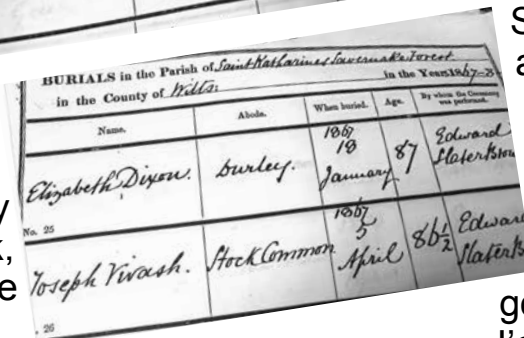 S
a
BURIALS in the Parish of Saint Katharines Savernake Forest
in the County of Wilts: in the Years 1867-8
Name. Abode. When buried. Age. By whom the Ceremony was performed.
Elizabeth Dixon. Durley. 1867 18 January 87 Edward Slater
No. 25
Joseph Vivash. Stock Common 1867 5 April 86½ Edward Slater
. 26
y
k,
e
ge